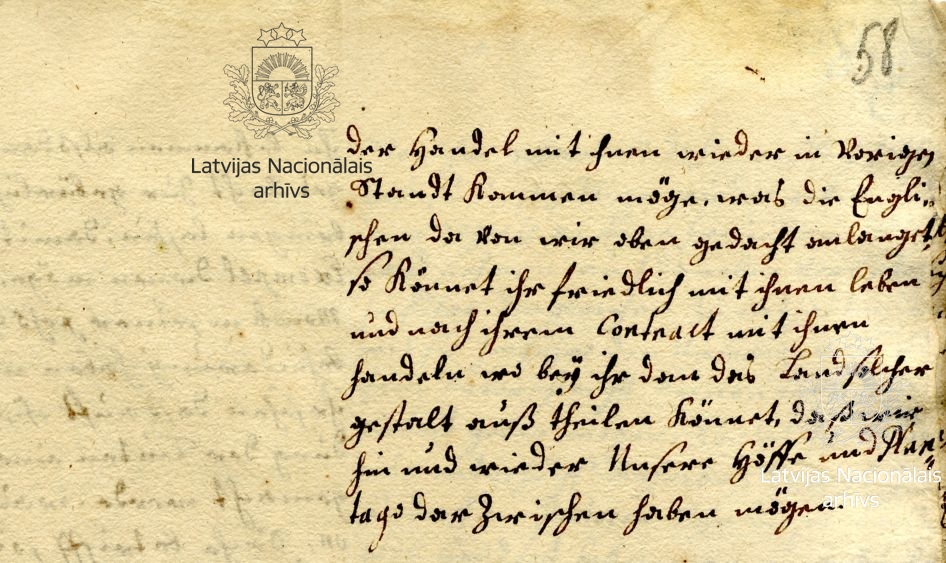 58.
Latvijas Nacionālais
arhīvs
der Handel mit ihnen wieder in vorigen
Standt kommen möge, was die Engli-
schen da von wir oben gedacht anlanget,
so könnet ihr friedlich mit ihnen leben
und nach ihrem Contract mit ihnen
handeln wo beÿ ihr dan das Land solcher
gestalt auß theilen könnet, daß wir
hin und wieder Unsere Höffe und Plan-
Latvijas Nacionālais
arhīvs
tage dar zwischen haben mögen.